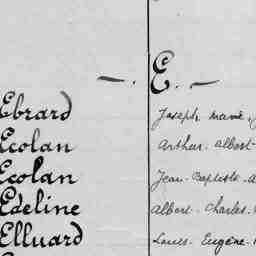 — . E . —
Ebrard Joseph. Marie.
Ecolan Arthur. Albert
Ecolan Jean. Baptiste. A
Edeline Albert. Charles.
Elluard Louis. Eugène.